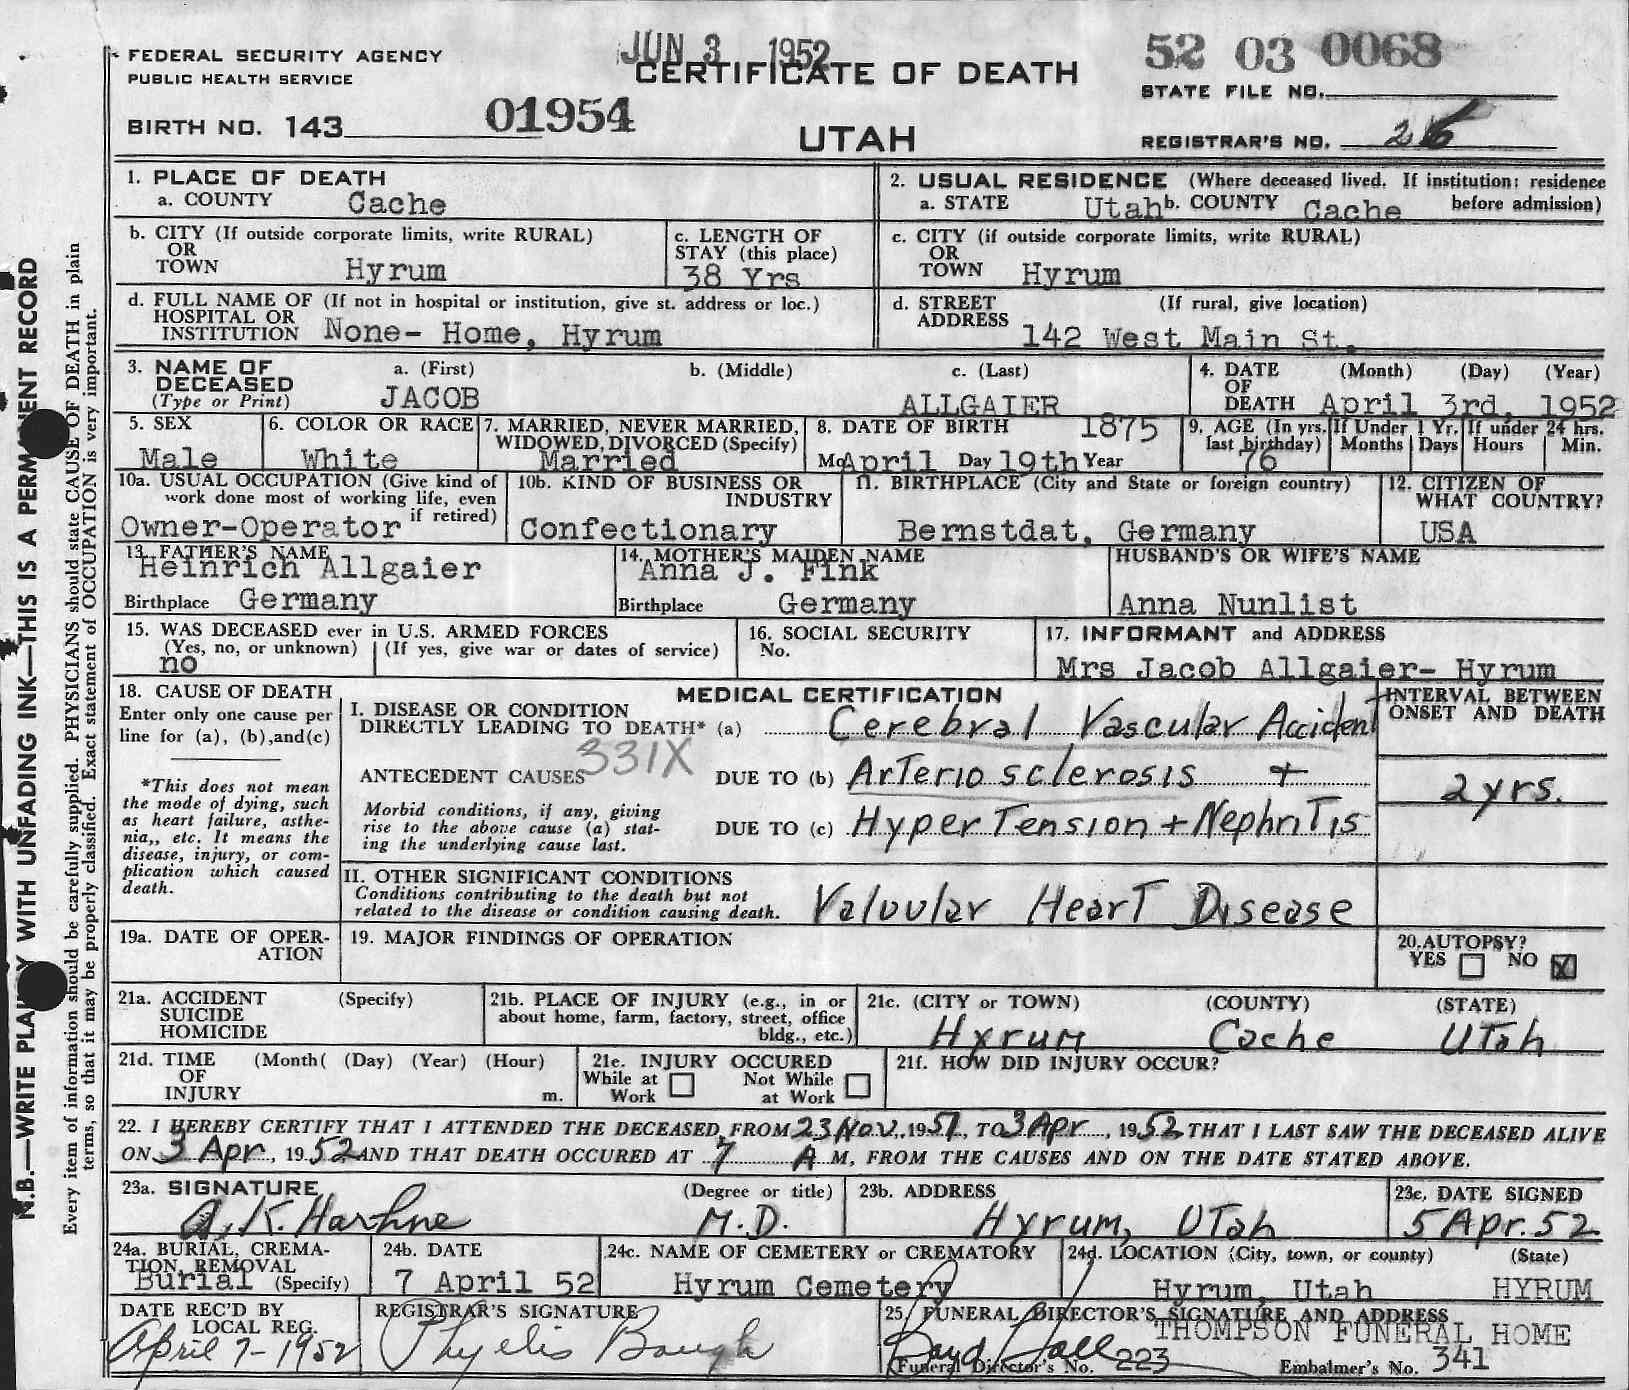 FEDERAL SECURITY AGENCY
PUBLIC HEALTH SERVICE
JUN 3 1952
CERTIFICATE OF DEATH
52 03 0068
STATE FILE NO.
BIRTH NO. 143
01954
UTAH
REGISTRAR'S NO. 26
1. PLACE OF DEATH
a. COUNTY Cache
2. USUAL RESIDENCE (Where deceased lived. If institution: residence before admission)
a. STATE Utah b. COUNTY Cache
b. CITY (If outside corporate limits, write RURAL)
OR
TOWN Hyrum
c. LENGTH OF
STAY (this place)
38 Yrs
c. CITY (if outside corporate limits, write RURAL)
OR
TOWN Hyrum
d. FULL NAME OF (If not in hospital or institution, give st. address or loc.)
HOSPITAL OR
INSTITUTION None- Home, Hyrum
d. STREET (If rural, give location)
ADDRESS 142 West Main St.
3. NAME OF
DECEASED
(Type or Print)
a. (First) b. (Middle) c. (Last)
JACOB ALLGAIER
4. DATE (Month) (Day) (Year)
OF
DEATH April 3rd, 1952
5. SEX
Male
6. COLOR OR RACE
White
7. MARRIED, NEVER MARRIED,
WIDOWED, DIVORCED (Specify)
Married
8. DATE OF BIRTH 1875
Mo April Day 19th Year
9. AGE (In yrs. last birthday)
76
If Under 1 Yr.
Months Days
If under 24 hrs.
Hours Min.
10a. USUAL OCCUPATION (Give kind of
work done most of working life, even
if retired)
Owner-Operator
10b. KIND OF BUSINESS OR
INDUSTRY
Confectionary
11. BIRTHPLACE (City and State or foreign country)
Bernstdat, Germany
12. CITIZEN OF
WHAT COUNTRY?
USA
13. FATHER'S NAME
Heinrich Allgaier
Birthplace Germany
14. MOTHER'S MAIDEN NAME
Anna J. Fink
Birthplace Germany
HUSBAND'S OR WIFE'S NAME
Anna Nunlist
15. WAS DECEASED ever in U.S. ARMED FORCES
(Yes, no, or unknown) (If yes, give war or dates of service)
no
16. SOCIAL SECURITY
No.
17. INFORMANT and ADDRESS
Mrs Jacob Allgaier- Hyrum
18. CAUSE OF DEATH
Enter only one cause per
line for (a), (b),and(c)
*This does not mean
the mode of dying, such
as heart failure, asthe-
nia,, etc. It means the
disease, injury, or com-
plication which caused
death.
MEDICAL CERTIFICATION
I. DISEASE OR CONDITION
DIRECTLY LEADING TO DEATH* (a) Cerebral Vascular Accident
331X
ANTECEDENT CAUSES DUE TO (b) Arteriosclerosis +
Morbid conditions, if any, giving
rise to the above cause (a) stat-
ing the underlying cause last.
DUE TO (c) Hypertension + Nephritis
INTERVAL BETWEEN
ONSET AND DEATH
2 yrs.
II. OTHER SIGNIFICANT CONDITIONS
Conditions contributing to the death but not
related to the disease or condition causing death.
Valvular Heart Disease
19a. DATE OF OPER-
ATION
19. MAJOR FINDINGS OF OPERATION
20. AUTOPSY?
YES NO X
21a. ACCIDENT (Specify)
SUICIDE
HOMICIDE
21b. PLACE OF INJURY (e.g., in or
about home, farm, factory, street, office
bldg., etc.)
21c. (CITY or TOWN) (COUNTY) (STATE)
Hyrum Cache Utah
21d. TIME (Month( (Day) (Year) (Hour)
OF
INJURY m.
21e. INJURY OCCURED
While at Work Not While at Work
21f. HOW DID INJURY OCCUR?
22. I HEREBY CERTIFY THAT I ATTENDED THE DECEASED FROM 23 Nov., 1951, TO 3 Apr, 1952 THAT I LAST SAW THE DECEASED ALIVE
ON 3 Apr, 1952 AND THAT DEATH OCCURED AT 7 A M, FROM THE CAUSES AND ON THE DATE STATED ABOVE.
23a. SIGNATURE (Degree or title)
A. K. M.D.
23b. ADDRESS
Hyrum, Utah
23c. DATE SIGNED
5 Apr. 52
24a. BURIAL, CREMA-
TION, REMOVAL
Burial (Specify)
24b. DATE
7 April 52
24c. NAME OF CEMETERY or CREMATORY
Hyrum Cemetery
24d. LOCATION (City, town, or county) (State)
Hyrum, Utah HYRUM
DATE REC'D BY
LOCAL REG.
April 7-1952
REGISTRAR'S SIGNATURE
Phyllis Baugh
25. FUNERAL DIRECTOR'S SIGNATURE AND ADDRESS
THOMPSON FUNERAL HOME
Boyd Hall
(Funeral Director's No. 223 Embalmer's No. 341
N.B.—WRITE PLAINLY WITH UNFADING INK—THIS IS A PERMANENT RECORD
Every item of information should be carefully supplied. PHYSICIANS should state CAUSE OF DEATH in plain
terms, so that it may be properly classified. Exact statement of OCCUPATION is very important.